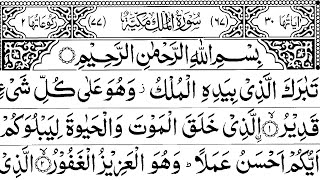 اٰيَاتُهَا ٣٠ (٦٧) سُوْرَةُ الْمُلْكِ مَكِّيَّةٌ (٧٧) رُكُوْعَاتُهَا ٢
بِسْمِ اللّٰهِ الرَّحْمٰنِ الرَّحِيْمِ
تَبٰرَكَ الَّذِيْ بِيَدِهِ الْمُلْكُ ز وَهُوَ عَلٰى كُلِّ شَيْءٍ
قَدِيْرُ ۙ ۝١ ۨالَّذِيْ خَلَقَ الْمَوْتَ وَالْحَيٰوةَ لِيَبْلُوَكُمْ
اَيُّكُمْ اَحْسَنُ عَمَلًا ؕ وَهُوَ الْعَزِيْزُ الْغَفُوْرُ ۙ ۝٢ الَّذِيْ